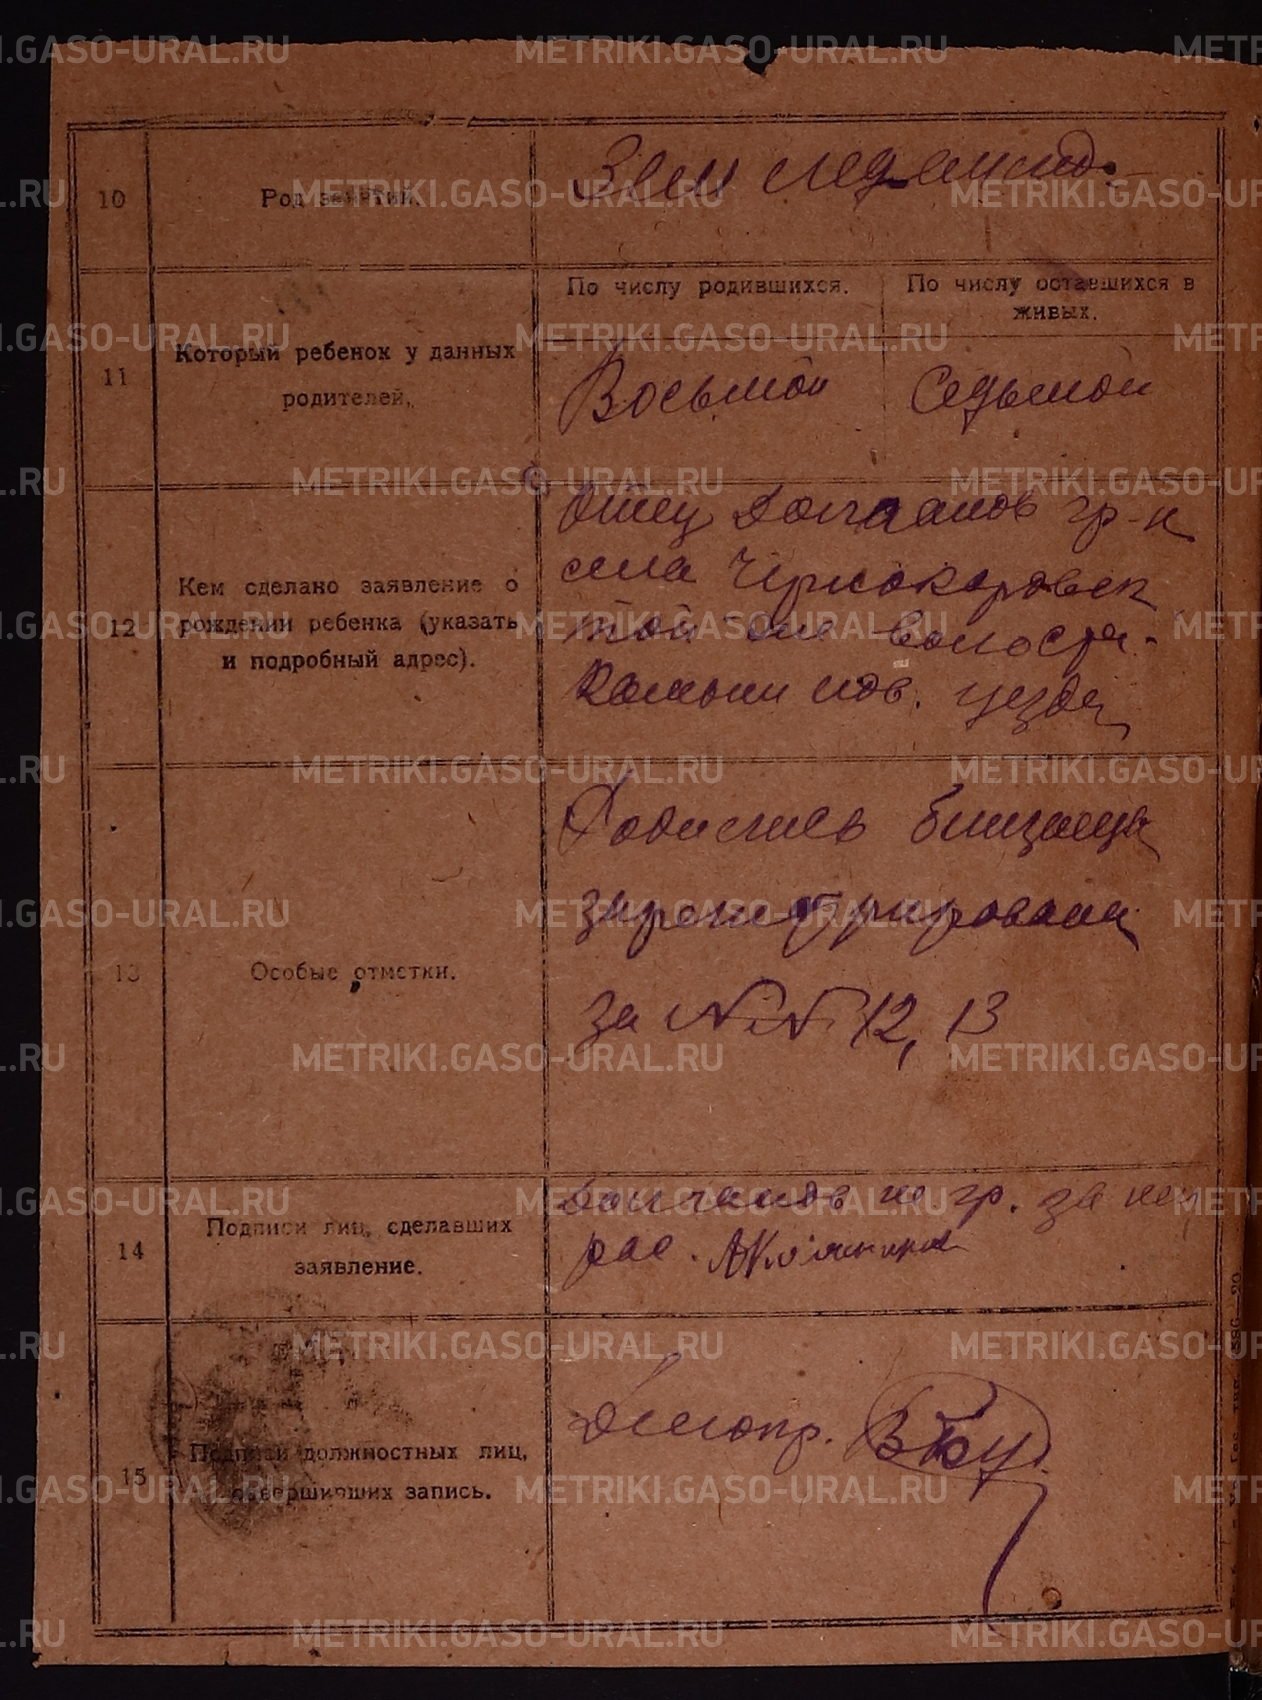 10
Род занятий.
11
Который ребенок у данных
родителей.
По числу родившихся.
По числу оставшихся в
живых.
Восьмой
Седьмой
12
Кем сделано заявление о
рождении ребенка (указать
и подробный адрес).
Отец гр-н
села Чернокоровск
той же волости
Камышлов. уезда
13
Особые отметки.
Родились близнецы
зарегистрированы
за №№ 12, 13
14
Подписи лиц, сделавших
заявление.
гр. за
рас.
15
Подписи должностных лиц,
совершивших запись.
Делопр.
METRIKI.GASO-URAL.RU